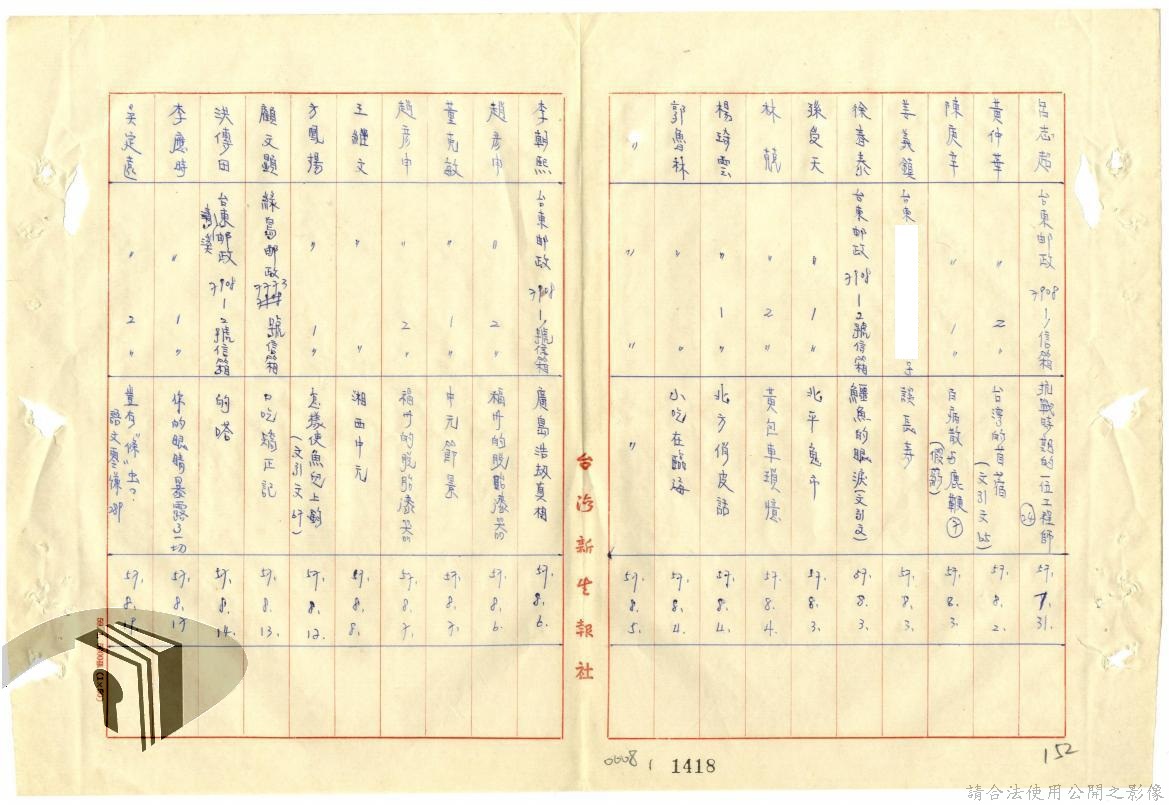 呂志超 台東郵政7908-1/信箱 抗戰時期的一位工程師 (24) 57. 7. 31.
黃仲華 〃 2 〃 台灣的首蓿 (文引文65) 57. 8. 2.
陳庚辛 〃 1 〃 百病散与鹿鞭 (偎葯) 57. 8. 3.
姜義鎮 台東 談長壽 57. 8. 3.
徐春泰 台東邮政7908-2號信箱 鱷魚的眼淚(文引文) 57. 8. 3.
孫夐天 〃 1 〃 57. 8. 3.
林競 〃 2 〃 黃包車瑣憶 57. 8. 4.
楊琦雲 〃 1 〃 北方俏皮話 57. 8. 4.
郭魯林 〃 〃 小吃在臨海 57. 8. 4.
〃 〃 〃 〃 57. 8. 5.
台灣新生報社
李朝熙 台東郵政7908-1/號信箱 廣島浩劫真相 57. 8. 6.
趙彥中 〃 2 〃 福州的脫胎漆器 57. 8. 6.
董克敏 〃 1 〃 中元節景 57. 8. 7.
趙彥中 〃 2 〃 福州的脫胎漆器 57. 8. 7.
王繼文 〃 〃 湘西中元 57. 8. 8.
方鳳揚 〃 1 〃 怎樣使魚兒上鈎 (文引文67) 57. 8. 12.
顧文顯 綠島郵政7773號信箱 口吃矯正記 57. 8. 13.
洪傳田 台東邮政7908-2號信箱 的嗒 57. 8. 14.
李應時 〃 1 〃 你的眼睛暴露了一切 57. 8. 17
吳定遠 〃 2 〃 豈有“條”出? 57. 8.
0008 1 1418
152
請合法使用公開之影像